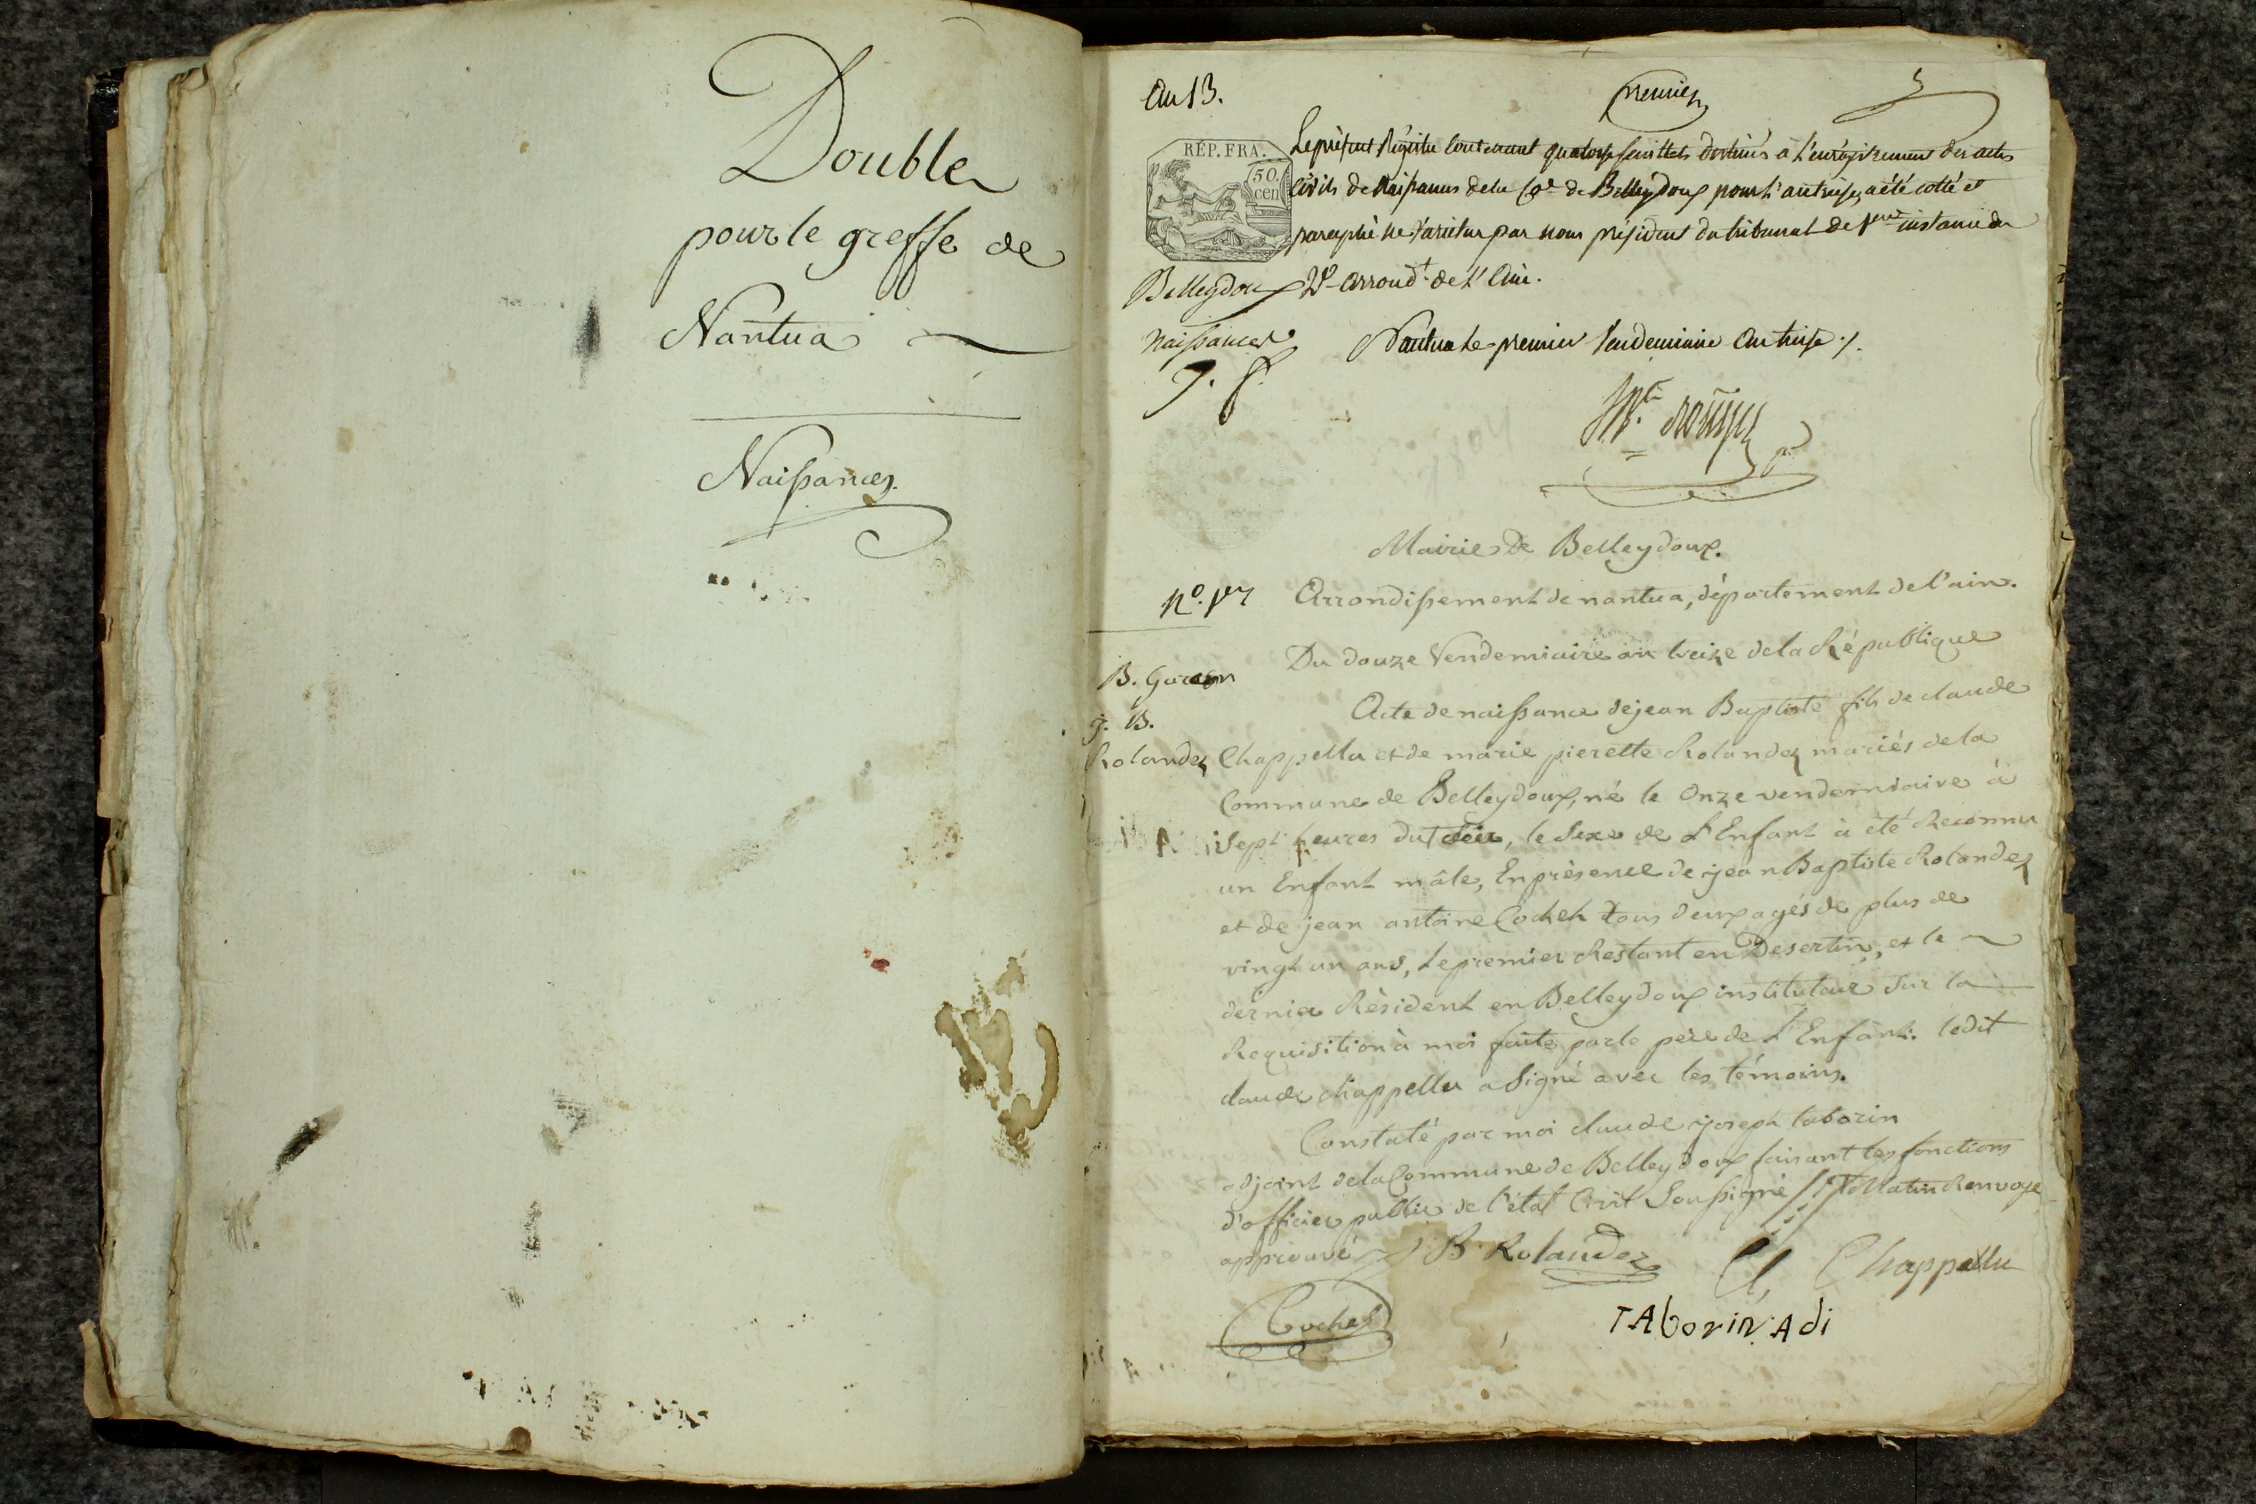 Double
pour le greffe de
Nantua
Naissances.
An 13.
premier
RÉP. FRA.
50.
cen
Le présent Régistre contenant quatorze feuillets destinés à l'enrégistrement des actes
civils de Naissances de la Cne de Belleydoux pour l'an treize, a été cotté et
paraphé ne varietur par nous président du tribunal de 1ere instance du
Belleydoux
Naissances
2e arrond.t de l'Ain.
Nantua le premier Vendemiaire an treize ./.
Mairie De Belleydoux.
No. 1er
Arrondissement de nantua, département de l'ain.
Du douze Vendemiaire an treize de la République
B. Garcon
J. B.
Rolandez
Acte de naissance de jean Baptiste fils de claude
Chappellu et de marie pierette Rolandez mariés de la
Commune de Belleydoux, né le Onze vendemiaire à
Sept heures du soir, le Sexe de L'Enfant à été Reconnu
un Enfant mâle, En présence de jean Baptiste Rolandez
et de jean antoine Cochet tous deux agés de plus de
vingt un ans, Le premier Restant en Desertin, et le
dernier Résident en Belleydoux instituteur Sur la
Requisition à moi faite par le père de L'Enfant. ledit
claude chappellu a Signé avec les témoins.
Constaté par moi claude joseph taborin
adjoint de la Commune de Belleydoux faisant les fonctions
d'officier public de l'état Civil Soussigné // Matin Renvoye
approuvé J B. Rolandez Cl. Chappellu
Cochet
TAborin Adj